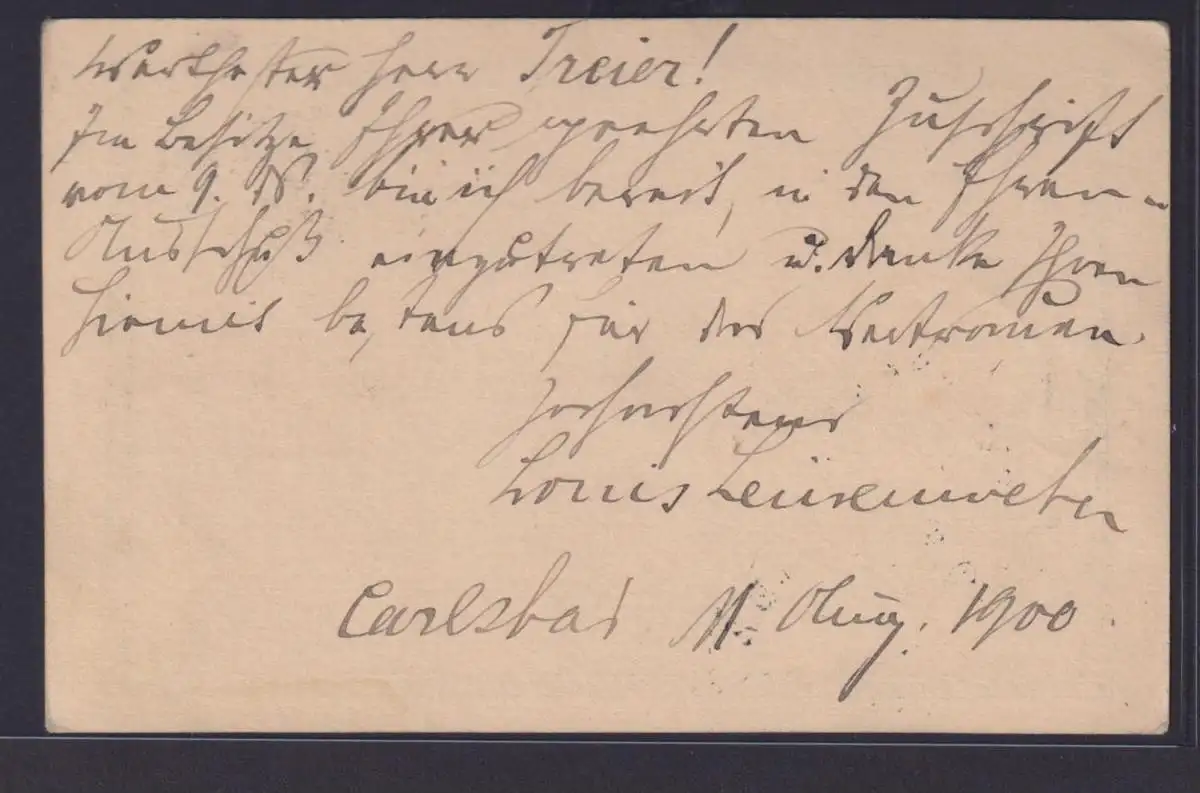 Werthester Herr Treier!
Im Besitze Ihrer geehrten Zuschrift
vom 9. ds. bin ich bereit, in den Ehren-
Ausschuß einzutreten u. danke Ihnen
hiemit bestens für das Vertrauen.
Hochachtend
Louis Leinenweber
Carlsbad 11. Aug. 1900.